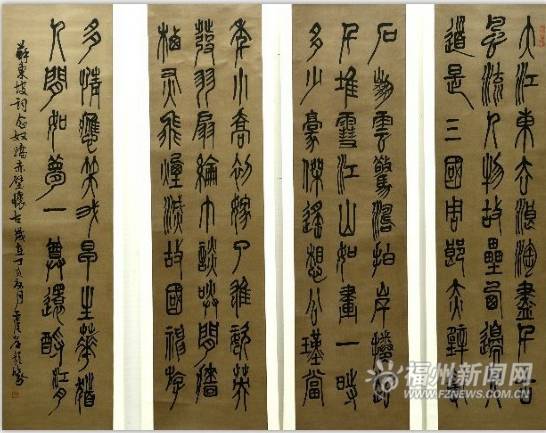 大江東去浪淘盡千古
風流人物故壘西邊人
道是三國周郎赤壁亂
石崩雲驚濤拍岸捲起
千堆雪江山如畫一時
多少豪傑遙想公瑾當
年小喬初嫁了雄姿英
發羽扇綸巾談笑間檣
櫓灰飛煙滅故國神游
多情應笑我早生華髮
人間如夢一尊還酹江月
蘇東坡詞念奴嬌赤壁懷古歲在丁亥
福州新闻网
WWW.FZNEWS.COM.CN